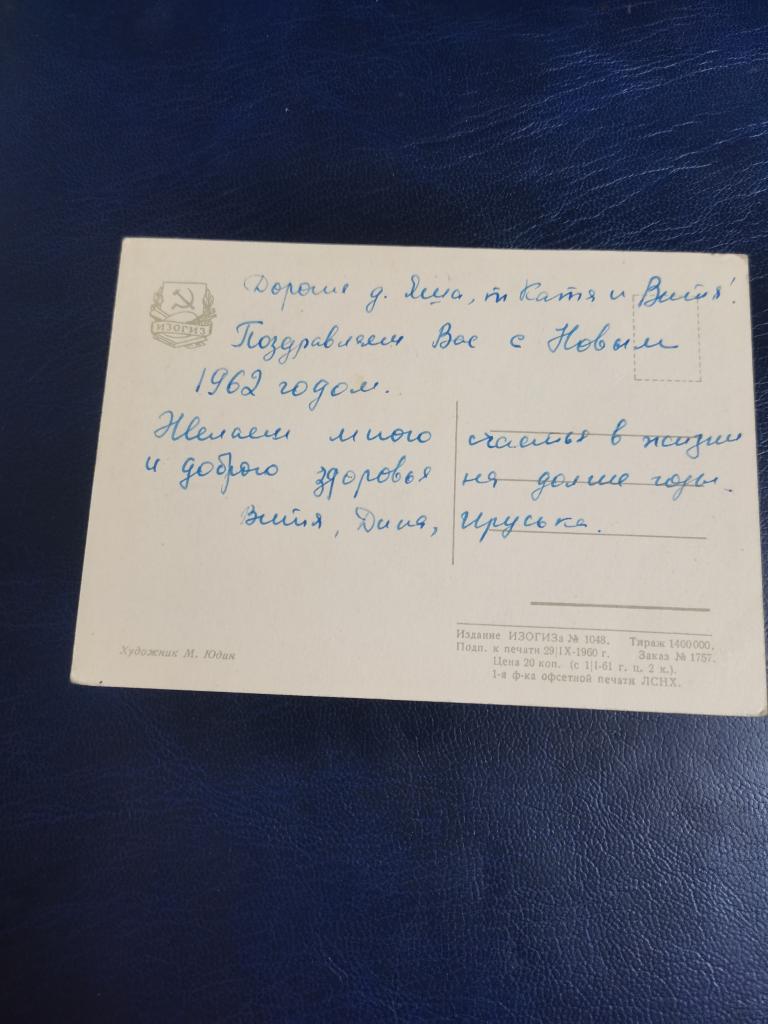 ИЗОГИЗ
Дорогие д. Яша, т Катя и Витя!
Поздравляем Вас с Новым
1962 годом.
Желаем много счастья в жизни
и доброго здоровья на долгие годы.
Витя, Дина, Ируська.
Художник М. Юдин
Издание ИЗОГИЗа № 1048. Тираж 1400000.
Подп. к печати 29|IX-1960 г. Заказ № 1757.
Цена 20 коп. (с 1|I-61 г. ц. 2 к.).
1-я ф-ка офсетной печати ЛСНХ.